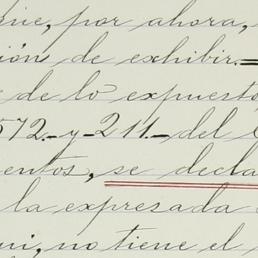 que, por ahora,
ión de exhibir.=
e de lo expuesto
572.-y-211.- del C
entos, se decla
la expresada
ui, no tiene el